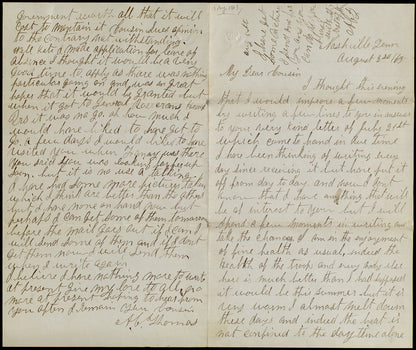 Nashville Tenn
August 2nd 1863
My Dear Cousin
I thought this evening
that I would improve a few moments
by writing a few lines to you in answer
to your very kind letter of July 21st
which came to hand in due time
I have been thinking of writing every
day since receiving it but have put it
off from day to day and now I don't
know that I have any thing that will
be of interest to you but I will
spend a few moments in writing and
take the chances I am in the enjoyment
of fine health as usual, indeed the
health of the troops and every body else
here is much better than I had supposed
it would be this summer but it is
very warm I almost melt down
these days and indeed the heat is
not confined to the day time alone
Government worth all that it will
cost to maintain it Cousin Lues opinion
to the contrary not withstanding
Will Kets made application for leave of
absence I thought it would be a very
good time to apply as there was nothing
particular going on and was in great
hopes that it would be granted but
when it got to General Rosecrans head
Qrs it was no go. oh how much I
would have liked to have got to
go a few days I would like to have
visited you when Mary was there
You said you was looking for her
soon. but it is no use a talking.
I have had some more pictures taken
which I think are better than the others
but have none on hand now but
perhaps I can get some of them tomorrow
before the mail goes out if I can I
will send some of them and if I dont
get them now I will send them
when I write again
I believe I have nothing more to write
at present give my love to all, no
more at present hoping to hear from
you often I remain Your Cousin
Thomas